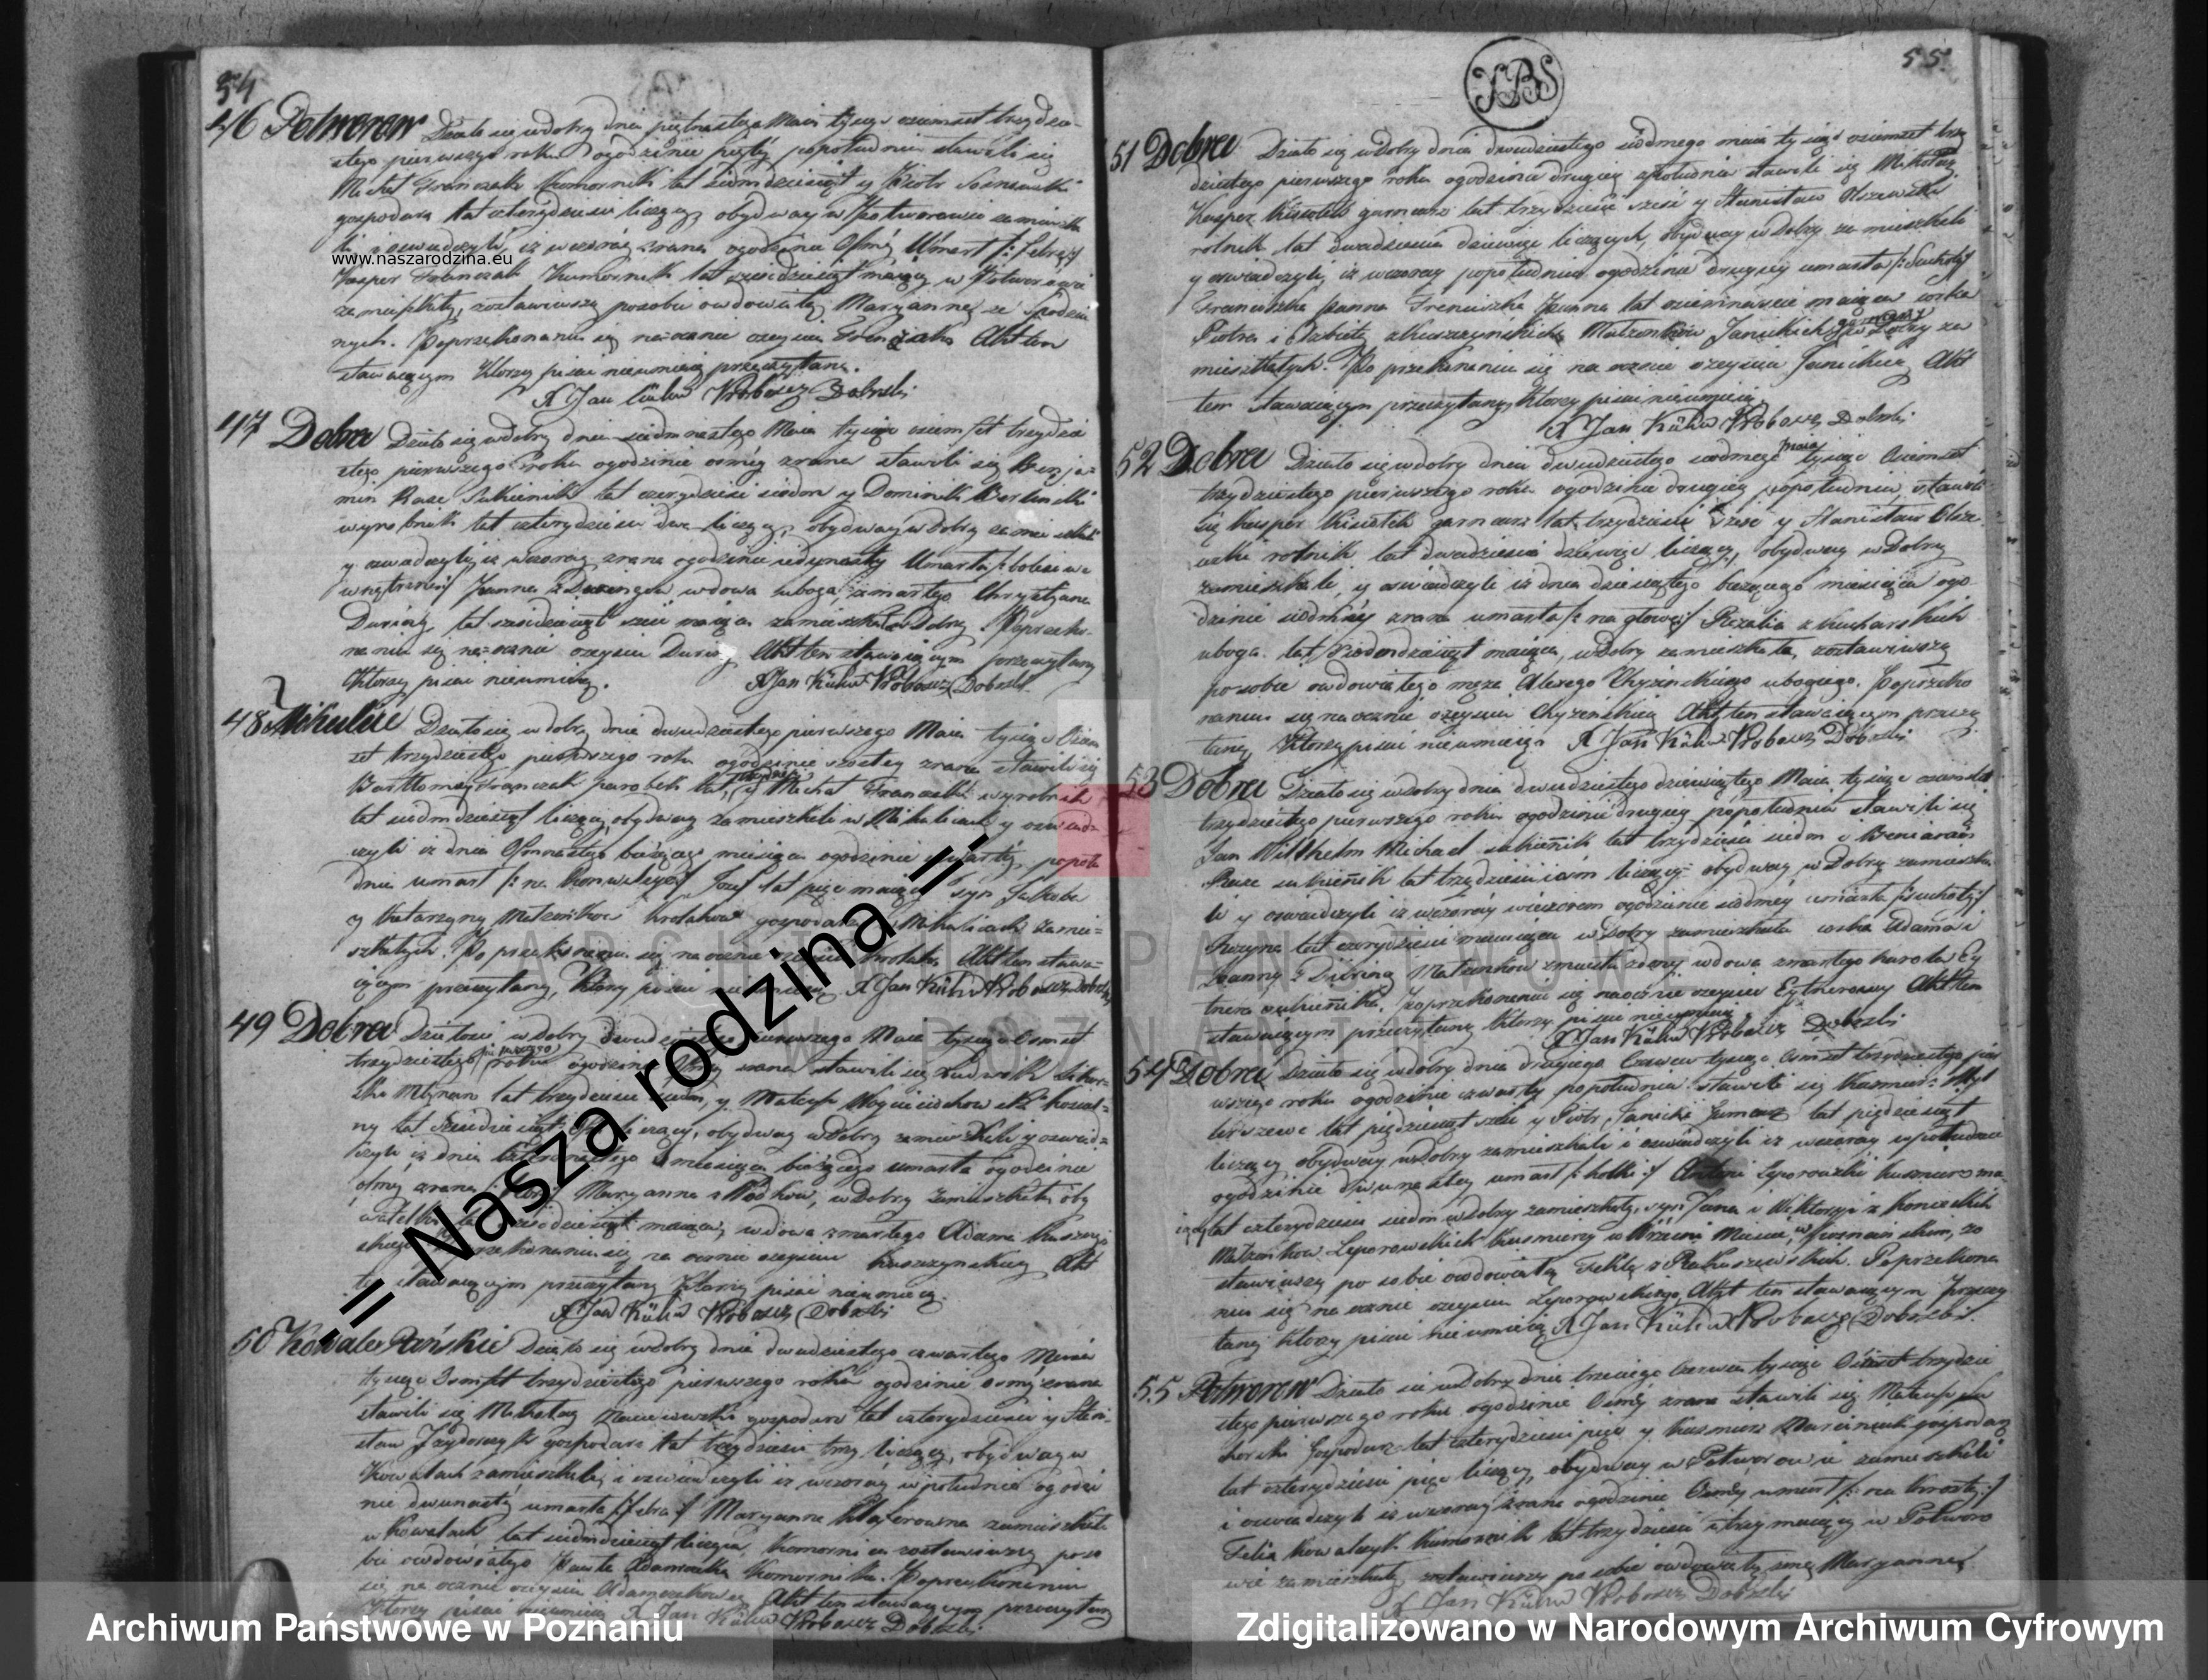 54
46 Potworow Działo się w Dobry dnia piętnastego Maia tysiąc osiemset trzydzie-
stego pierwszego roku o godzinie piątey popołudniu stawili się
Michał Franczak Komornik lat siedmdziesiąt y Piotr
gospodarz lat czterydzieści liczący, obydway w Potworowie zamieszka-
li i oswiadczyli, iż wczoray zrana o godzinie Osmy Umarł /: febra :/
www.naszarodzina.eu
Kasper Franczak Kumornik lat sześćdziesiąt maiący w Potworowie
zamieszkały, zostawiwszy po sobie owdowiałą Maryannę ze
nych. Po przekonaniu się naocznie o zeyściu Franczaka Akt ten
stawaiącym którzy pisać nieumieią przeczytany.
X Jan Kühn Proboszcz Dobrski
47 Dobra Działo się w Dobry dnia siedmnastego Maia tysiąc osiemset trzydzie
stego pierwszego roku o godzinie osmey zrana stawili się Benja-
min Raze Sukiennik lat czterydzieści siedm y Dominik
wyrobnik lat czterydzieści dwa liczący, obydway w Dobry zamieszkali
y oswiadczyli iż wczoray zrana o godzinie iedynasty Umarła /: bolesci we
wnętrzności :/ Joanna z wdowa uboga, zmarłego Chrystyana
During, lat sześćdziesiąt sześć maiąca zamieszkała w Dobry. Po przeko-
naniu się naocznie o zeyściu During Akt ten stawaiącym przeczytany
którzy pisać nieumieią. X Jan Kühn Proboszcz Dobrski
48 Mikulice Działo się w Dobry dnia dwudziestego pierwszego Maia tysiąc Osiem
set trzydziestego pierwszego roku o godzinie szostey zrana stawili się
Bartłomiey Franczak parobek lat y Michał Franczak wyrobnik
lat siedmdziesiąt liczący, obydway zamieszkali w Mikulicach y oswiad-
czyli iż dnia Osmnastego bieżącego miesiąca o godzinie czwartey popołu
dniu umarł /: na konwulsye :/ Jozef lat pięć maiący syn Jakoba
y Katarzyny Małżonkow Krolakow gospodarzy w Mikulicach zamie-
szkałych. Po przekonaniu się naocznie o zeyściu Krolaka Akt ten stawa-
iącym przeczytany, którzy pisać nieumieią X Jan Kühn Proboszcz Dobrski
49 Dobra Działo się w Dobry dwudziestego pierwszego Maia tysiąc Osmset
trzydziestego pierwszego roku o godzinie zrana stawili się Ludwik
Młynarz lat trzydzieści siedm, y Mateusz Woyciechowski
ny lat sześćdziesiąt liczący, obydway w Dobry zamieszkali y oswiad-
czyli iż dnia miesiąca bieżącego umarła o godzinie
osmy zrana Maryanna w Dobry zamieszkała oby
watelka lat maiąca, wdowa zmarłego Adama
Po przekonaniu się naocznie o zeyściu Kuszzynskiey Akt
ten stawaiącym przeczytany którzy pisać nieumieią.
X Jan Kühn Proboszcz Dobrski
50 Kowale Pańskie Działo się w Dobry dnia dwudziestego czwartego Maia
tysiąc Osmset trzydziestego pierwszego roku o godzinie osmy zrana
stawili się Mikołay gospodarz lat czterydzieści y Stani-
sław Izydorczyk gospodarz lat trzydzieści trzy liczący, obydway w
Kowalach zamieszkali, i oswiadczyli iż wczoray w południe o godzi
nie dwunasty umarła /: febra :/ Maryanna zamieszkała
w Kowalach, lat siedmdziesiąt licząca, komornica zostawiwszy po so
bie owdowiałego Pawła Adamiaka Komornika. Po przekonaniu
się naocznie o zeyściu Adamczakowey Akt ten stawaiącym przeczytany
którzy pisać nieumieią X Jan Kühn Proboszcz Dobrski
55
51 Dobra Działo się w Dobry dnia dwudziestego siodmego maia tysiąc osiemset trzy
dziestego pierwszego roku o godzinie drugiey z południa stawili się Mikołay
Kasper Kisiołek garncarz lat trzydzieści sześć y Stanisław Olszewski
rolnik lat dwadzieścia dziewięć liczących, obydway w Dobry zamieszkali
y oswiadczyli, iż wczoray popołudniu o godzinie drugiey umarła /: Suchoty :/
Franciszka Panna lat osiemnaście maiąca corka
Piotra i Elżbiety Małżonkow Janickich garncarzy w Dobry za
mieszkałych. Po przekonaniu się naocznie o zeyściu Janickiey Akt
ten stawaiącym przeczytany, którzy pisać nieumieią
X Jan Kühn Proboszcz Dobrski
52 Dobra Działo się w Dobry dnia dwudziestego siodmego maia tysiąc Osiemset
trzydziestego pierwszego roku o godzinie drugiey popołudniu, stawili
się Kasper Kisiołek garncarz lat trzydzieści sześć y Stanisław Olsze
wski rolnik lat dwadzieścia dziewięć liczący, obydway w Dobry
zamieszkali, y oswiadczyli iż dnia dziesiątego bieżącego miesiąca o go
dzinie siodmey zrana umarła /: na głowę :/ Rozalia z Kucharskich
uboga lat siedmdziesiąt maiąca, w Dobry zamieszkała, zostawiwszy
po sobie owdowiałego męża Chyżinskiego ubogiego. Po przeko
naniu się naocznie o zeyściu Chyżenskiey Akt ten stawaiącym przeczy
tany którzy pisać nieumieią X Jan Kühn Proboszcz Dobrski
53 Dobra Działo się w Dobry dnia dwudziestego dziewiątego Maia tysiąc osiemset
trzydziestego pierwszego roku o godzinie drugiey popołudniu stawili się
Jan Willhelm Michael sukiennik lat trzydzieści siedm y Beniamin
Raze sukiennik lat trzydzieści ośm liczący obydway w Dobry zamieszka
li y oswiadczyli iż wczoray wieczorem o godzinie siodmey umarła /: suchoty :/
Zuzanna lat czterydzieści maiąca w Dobry zamieszkała corka Adama i
Joanny z During Małżonkow wdowa zmarłego Karola Ey
tnera sukiennika. Po przekonaniu się naocznie o zeyściu Eytnerowey Akt ten
stawaiącym przeczytany którzy pisać nieumieią
X Jan Kühn Proboszcz Dobrski
54 Dobra Działo się w Dobry dnia drugiego Czerwca tysiąc Osmset trzydziestego pier
wszego roku o godzinie czwarty popołudniu stawili się Kazmierz
szewc lat pięćdziesiąt sześć y Piotr Janicki Garncarz lat pięćdziesiąt
liczący obydway w Dobry zamieszkali i oswiadczyli iż wczoray w południe
o godzinie dwunastey umarł /: kolki :/ Antoni Leporowski kusnierz ma-
iący lat czterydzieści siedm w Dobry zamieszkały, syn Jana i Wiktoryi z Konieckich
Małżonkow Leporowskich kusnierzy w Mieście w Poznańskim, zo
stawiwszy po sobie owdowiałą Teklę z Rakuszewskich. Po przekona
niu się naocznie o zeyściu Leporowskiego, Akt ten stawaiącym przeczy
tany którzy pisać nieumieią X Jan Kühn Proboszcz Dobrski
55 Potworow Działo się w Dobry dnia trzeciego Czerwca tysiąc Osmset trzydzie
stego pierwszego roku o godzinie Osmey zrana stawili się Mateusz
Gospodarz lat czterydzieści pięć y Kazmierz Marciniak gospodarz
lat czterydzieści pięć liczący, obydway w Potworowie zamieszkali
i oswiadczyli iż wczoray zrana o godzinie Osmey umarł /: na krosty :/
Felix Kowalczyk Kumornik lat trzydzieści trzy maiący w Potworo
wie zamieszkały, zostawiwszy po sobie owdowiałą żonę Maryannę
X Jan Kühn Proboszcz Dobrski
.:= Nasza rodzina =:.
ARCHIWUM PAŃSTWOWE
W POZNANIU
Archiwum Państwowe w Poznaniu
Zdigitalizowano w Narodowym Archiwum Cyfrowym